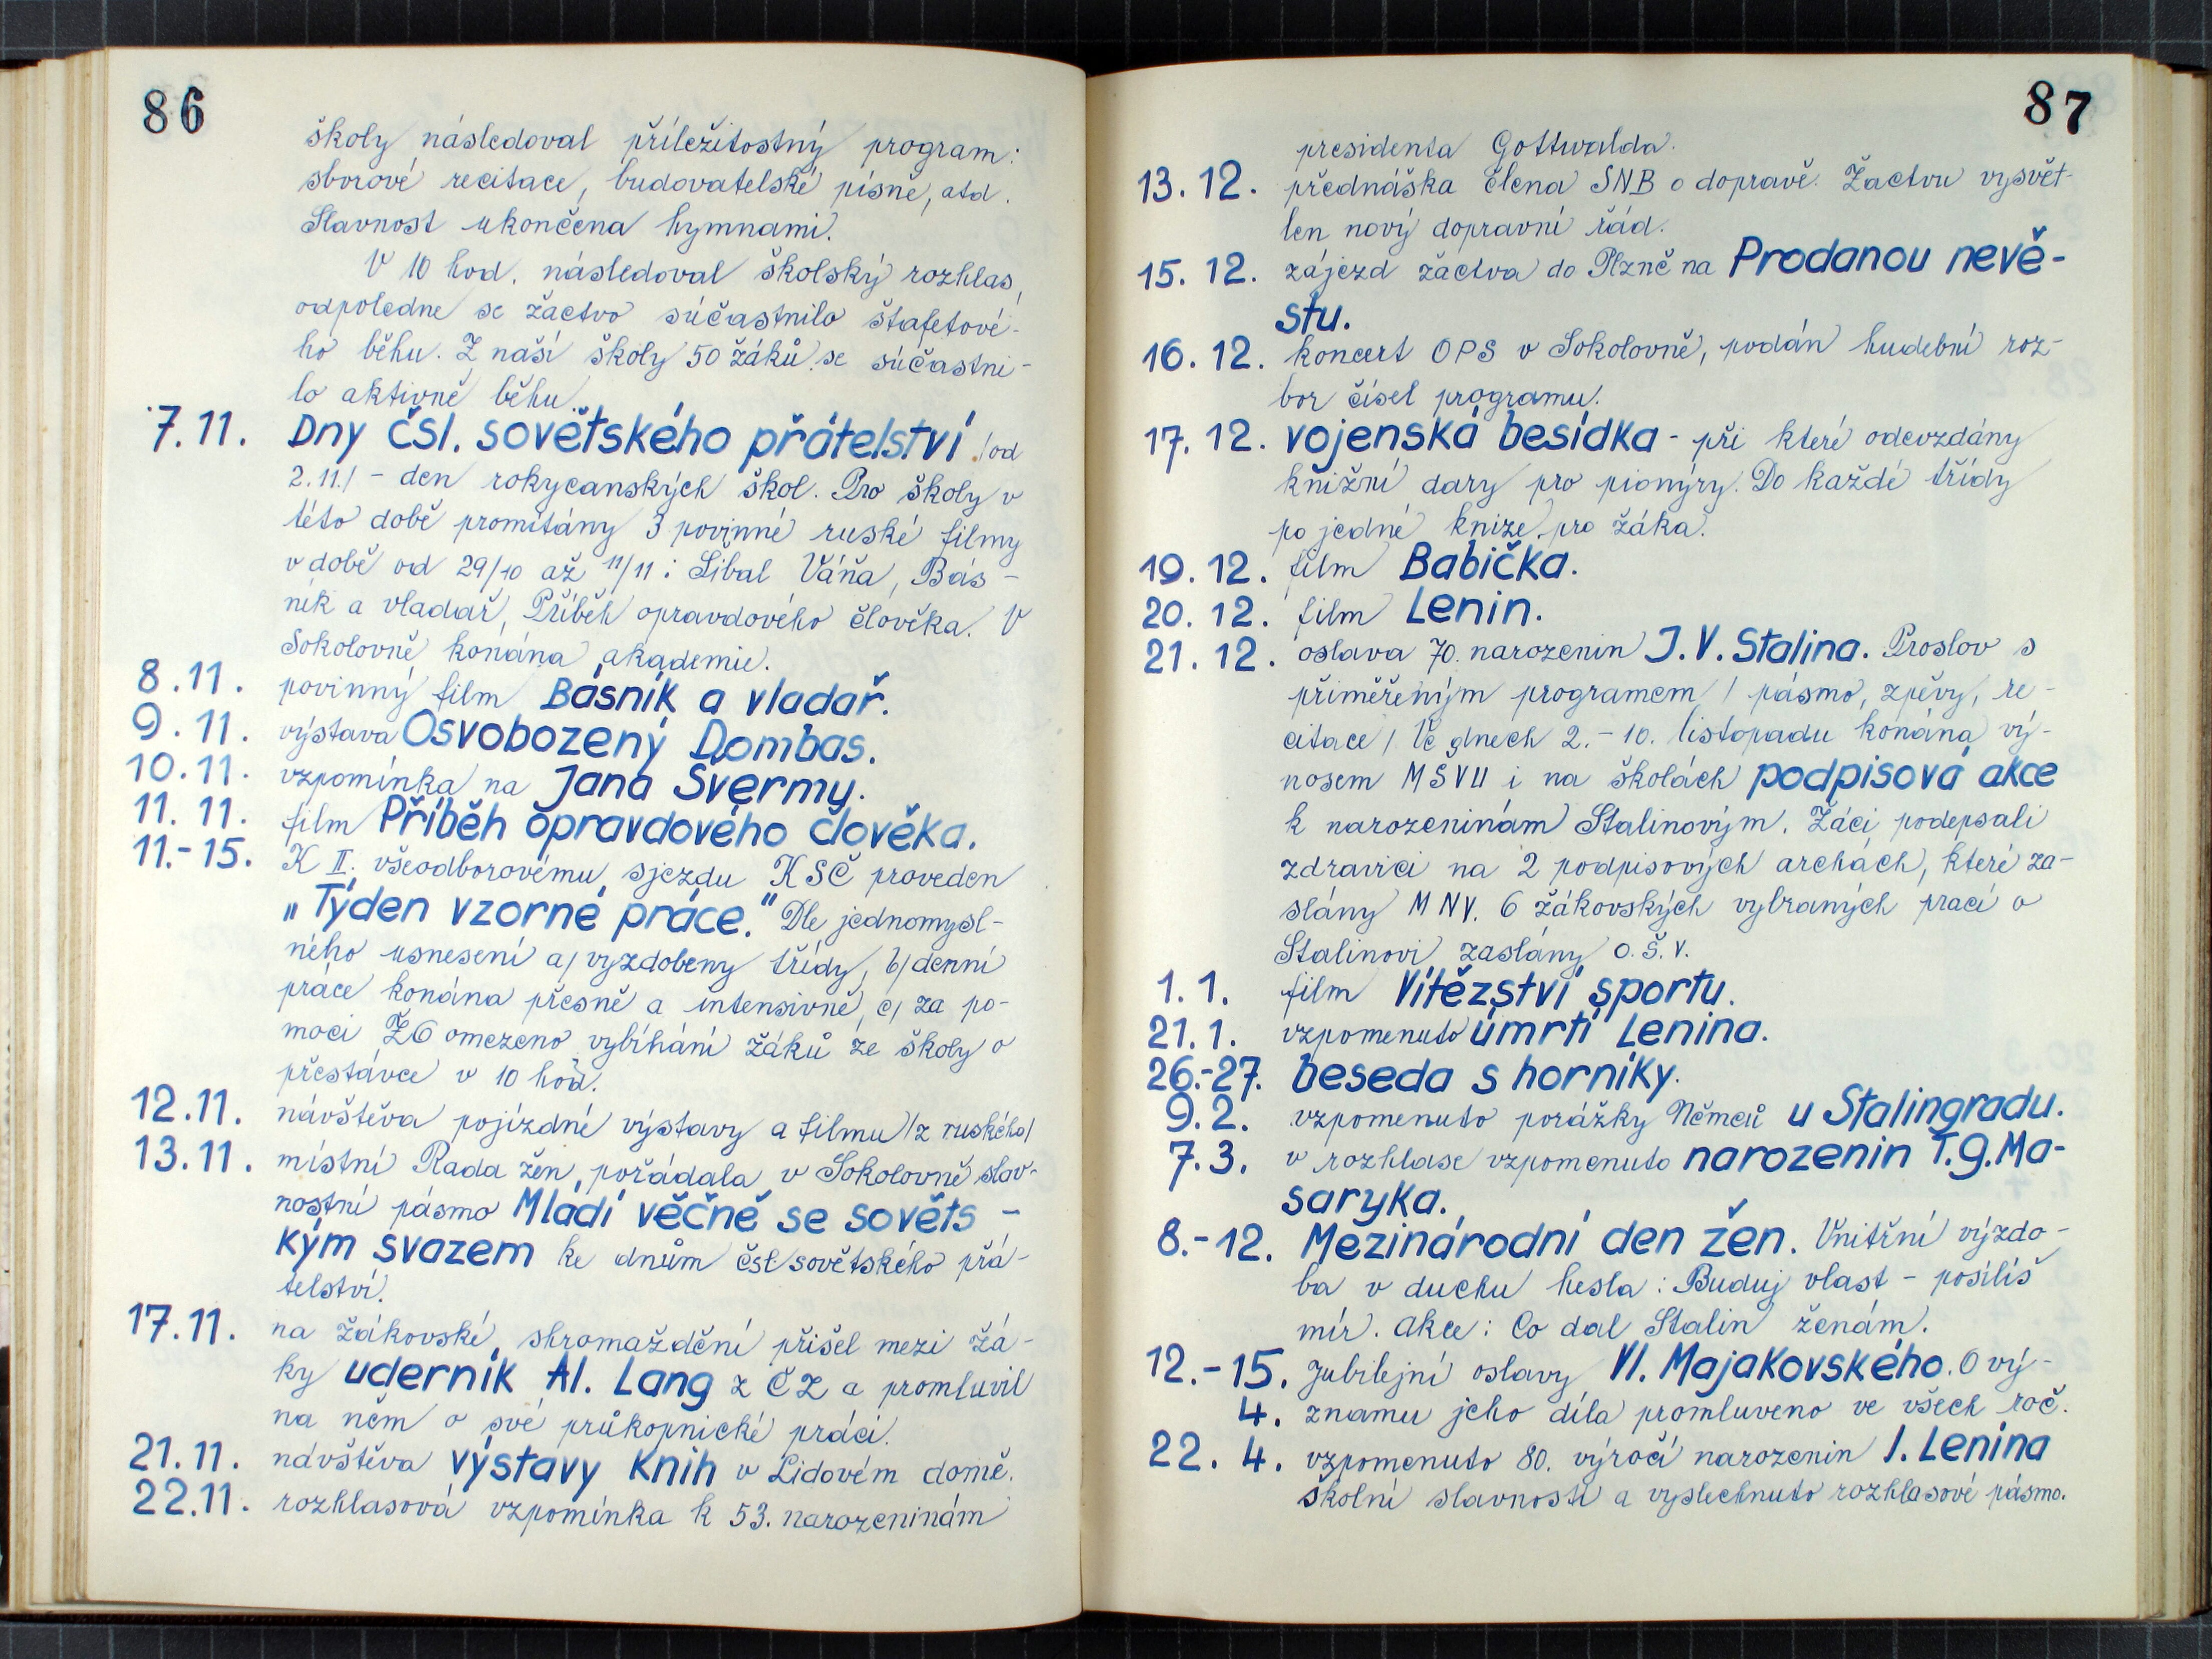 86
školy následoval příležitostný program:
sborové recitace, budovatelské písně, atd.
Slavnost ukončena hymnami.
V 10 hod. následoval školský rozhlas,
odpoledne se žactvo súčastnilo štafetové-
ho běhu. Z naší školy 50 žáků se súčastni-
lo aktivně běhu.
7.11. Dny čsl. sovětského přátelství /od
2.11./ - den rokycanských škol. Pro školy v
této době promítány 3 povinné ruské filmy
v době od 29/10 až 11/11: Šibal Váňa, Bás-
ník a vladař, Příběh opravdového člověka. V
Sokolovně konána akademie.
8.11. povinný film Básník a vladař.
9.11. výstava Osvobozený Dombas.
10.11. vzpomínka na Jana Švermy.
11.11. film Příběh opravdového člověka.
11.-15. K II. všeodborovému sjezdu KSČ proveden
„Týden vzorné práce." Dle jednomysl-
ného usnesení a/ vyzdobeny třídy, b/ denní
práce konána přesně a intensivně, c/ za po-
moci ŽS omezeno vybíhání žáků ze školy o
přestávce v 10 hod.
12.11. návštěva pojízdné výstavy a filmu /z ruského/
13.11. místní Rada žen pořádala v Sokolovně slav-
nostní pásmo Mladí věčně se sověts-
kým svazem ke dnům čsl. sovětského přá-
telství.
17.11. na žákovské shromáždění přišel mezi žá-
ky úderník Al. Lang z ČZ a promluvil
na něm o své průkopnické práci.
21.11. návštěva výstavy knih v Lidovém domě.
22.11. rozhlasová vzpomínka k 53. narozeninám
87
presidenta Gottwalda.
13.12. přednáška člena SNB o dopravě. Žactvu vysvět-
len nový dopravní řád.
15.12. zájezd žactva do Plzně na Prodanou nevě-
stu.
16.12. koncert OPS v Sokolovně, podán hudební roz-
bor čísel programu.
17.12. vojenská besídka - při které odevzdány
knižní dary pro pionýry. Do každé třídy
po jedné knize pro žáka.
19.12. film Babička.
20.12. film Lenin.
21.12. oslava 70. narozenin J. V. Stalina. Proslov s
přiměřeným programem / pásmo, zpěvy, re-
citace / Ve dnech 2.-10. listopadu konána vý-
nosem MŠVU i na školách podpisová akce
k narozeninám Stalinovým. Žáci podepsali
zdravici na 2 podpisových archách, které za-
slány MNV. 6 žákovských vybraných prací o
Stalinovi zaslány O.Š.V.
1.1. film Vítězství sportu.
21.1. vzpomenuto úmrtí Lenina.
26.-27. beseda s horníky.
9.2. vzpomenuto porážky Němců u Stalingradu.
7.3. v rozhlase vzpomenuto narozenin T.G.Ma-
saryka.
8.-12. Mezinárodní den žen. Vnitřní výzdo-
ba v duchu hesla: Buduj vlast - posílíš
mír. Akce: Co dal Stalin ženám.
12.-15. Jubilejní oslavy Vl. Majakovského. O vý-
4. znamu jeho díla promluveno ve všech roč.
22.4. vzpomenuto 80. výročí narozenin I. Lenina
školní slavností a vyslechnuto rozhlasové pásmo.